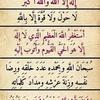 إله إلا الله والله أكبر
لا حول ولا قوة إلا بالله
أستغفر الله العظيم الذي لا إله
إلا هو الحي القيوم وأتوب إليه
سبحان الله وبحمده عدد خلقه ورضا
نفسه وزنة عرشه ومداد كلماته